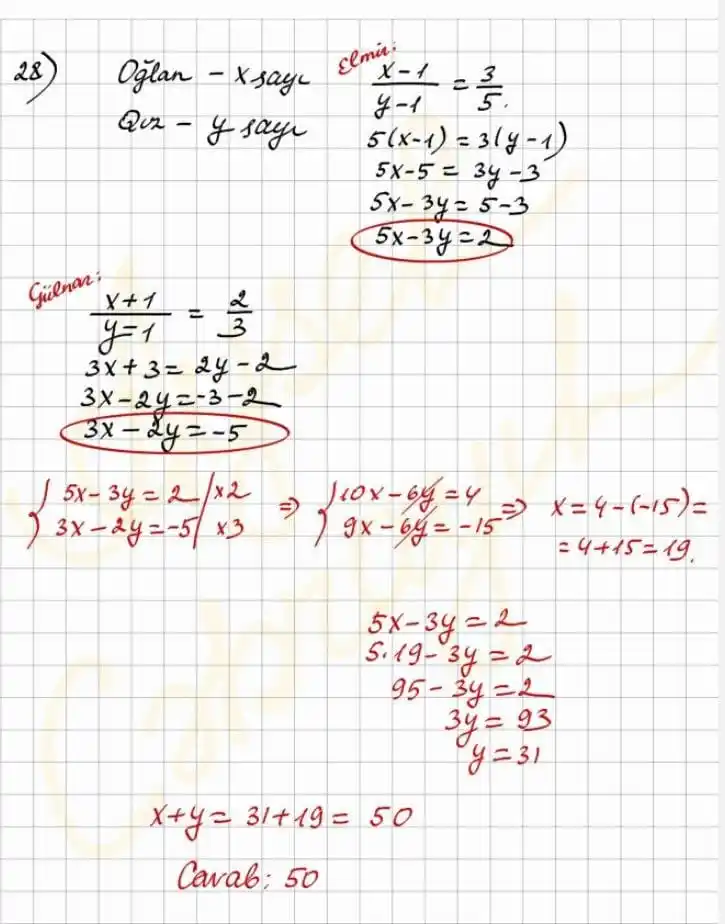 28) Oğlan - x sayı
Qız - y sayı
Elmir:
x-1/y-1 = 3/5.
5(x-1) = 3(y-1)
5x-5 = 3y-3
5x-3y = 5-3
5x-3y = 2
Gülnar:
x+1/y=1 = 2/3
3x+3 = 2y-2
3x-2y = -3-2
3x-2y = -5
{5x-3y = 2 /x2 => {10x-6y = 4 => x = 4-(-15) =
3x-2y = -5/ x3 9x-6y = -15 = 4+15 = 19.
5x-3y = 2
5·19-3y = 2
95-3y = 2
3y = 93
y = 31
x+y = 31+19 = 50
Cavab: 50